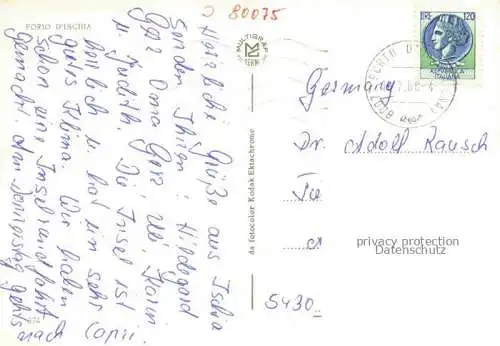 FORIO D'ISCHIA
80075
Herzliche Grüße aus Ischia
senden Ihnen: Hildegard
Oma
u. Judith. Die Insel ist
herrlich u. hat ein sehr
gutes Klima. Wir haben
schon eine Inselrundfahrt
gemacht. Am Donnerstag geht's
nach Capri.
MULTIGRAF
TERNI
da fotocolor Kodak Ektachrome
LIRE 120
80075
Germany
Dr. Adolf Rausch
privacy protection
Datenschutz
5430